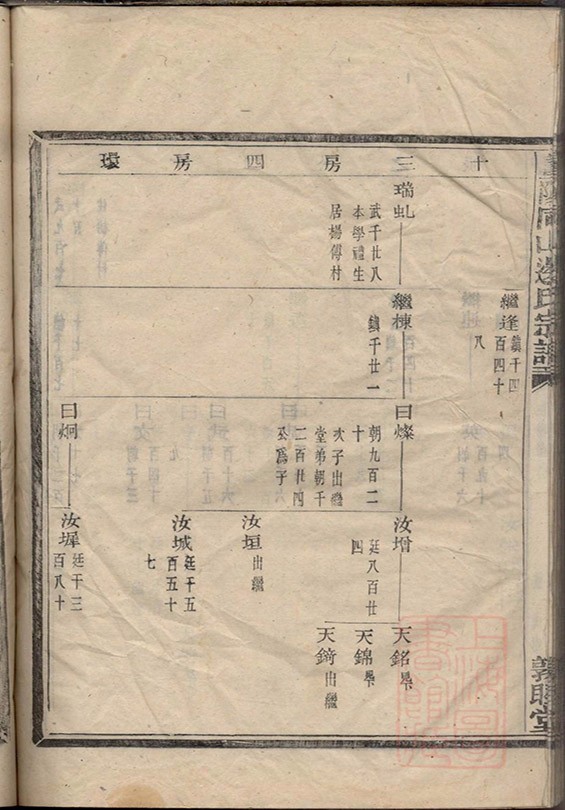 十三房四房環
繼逢
鎮千四
百四十
八
瑞虬
武千廿八
本學禮生
居楊傅村
繼棟
鎮千廿一
曰燦
朝九百二
十
次子出繼
堂弟朝千
二百廿四
公爲子
汝增
廷八百廿
四
天銘
天錦
天錡
出繼
汝垣
出繼
汝城
廷千五
百五十
七
曰炯
汝墀
廷千三
百八十
山邊氏宗譜
義
堂